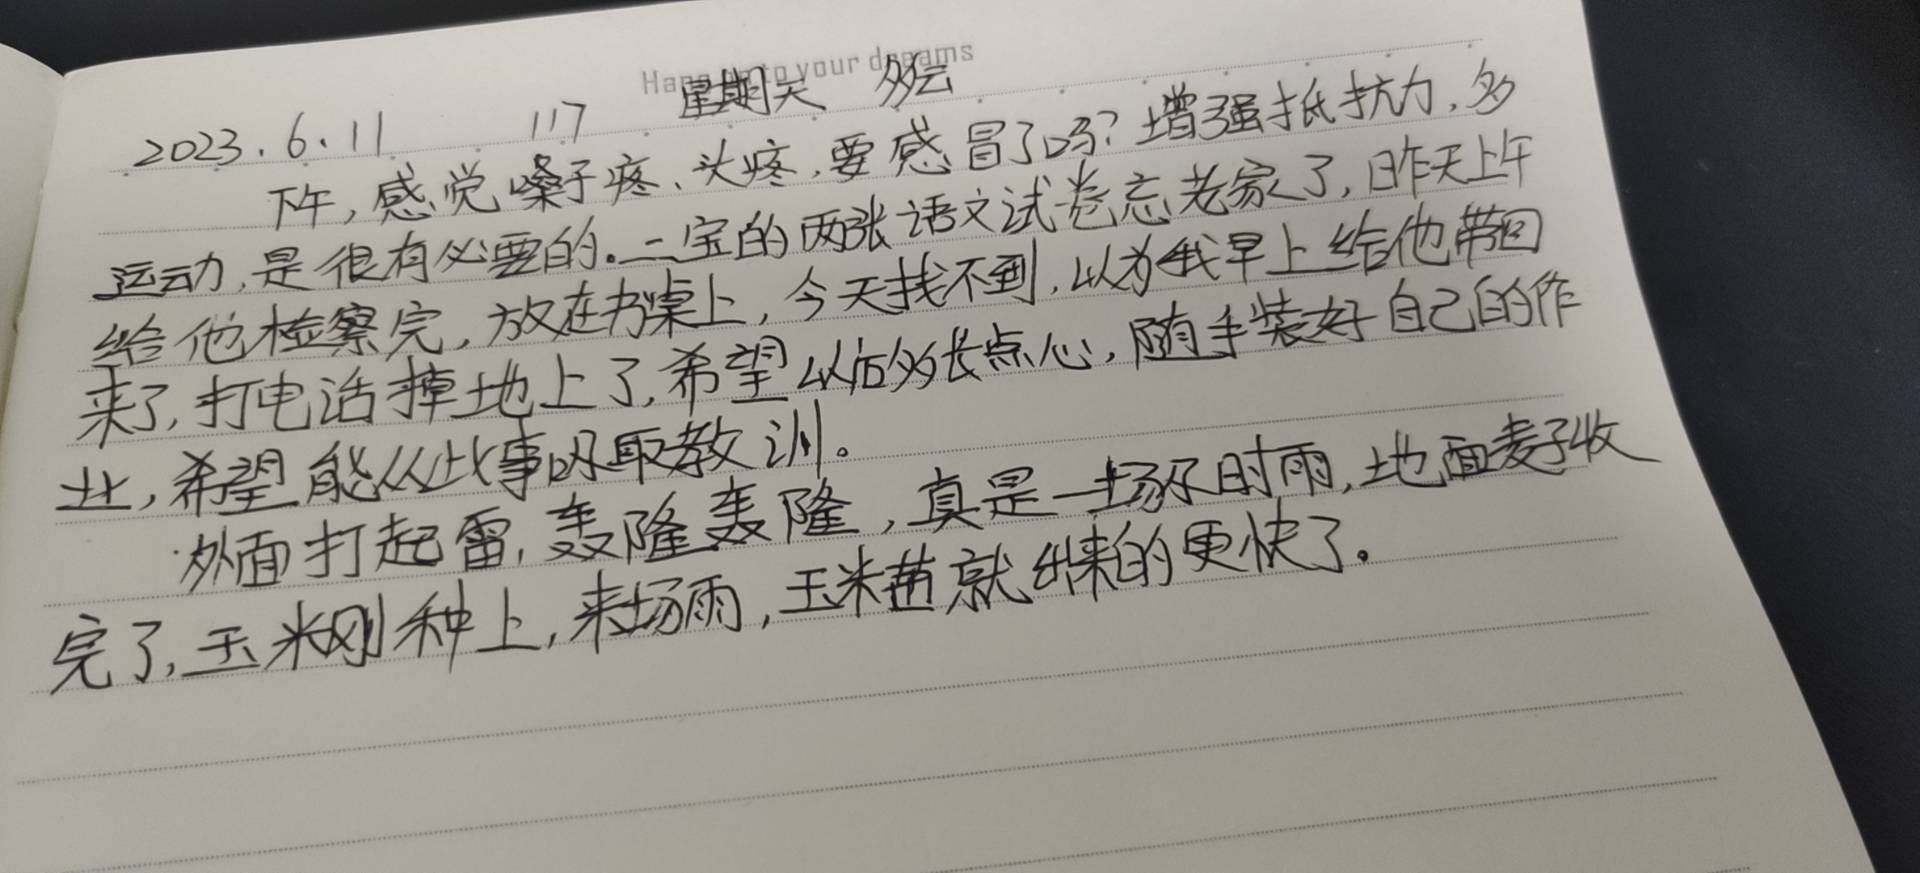 Hang on to your dreams
2023.6.11 117 星期天 多云
下午,感觉嗓子疼、头疼,要感冒了吗?增强抵抗力,多
运动,是很有必要的。二宝的两张语文试卷忘老家了,昨天上午
给他检察完,放在书桌上,今天找不到,以为我早上给他带回
来了,打电话掉地上了,希望以后多长点心,随手装好自己的作
业,希望能从此事吸取教训。
外面打起雷,轰隆轰隆,真是一场及时雨,地面麦子收
完了,玉米刚种上,来场雨,玉米苗就出来的更快了。